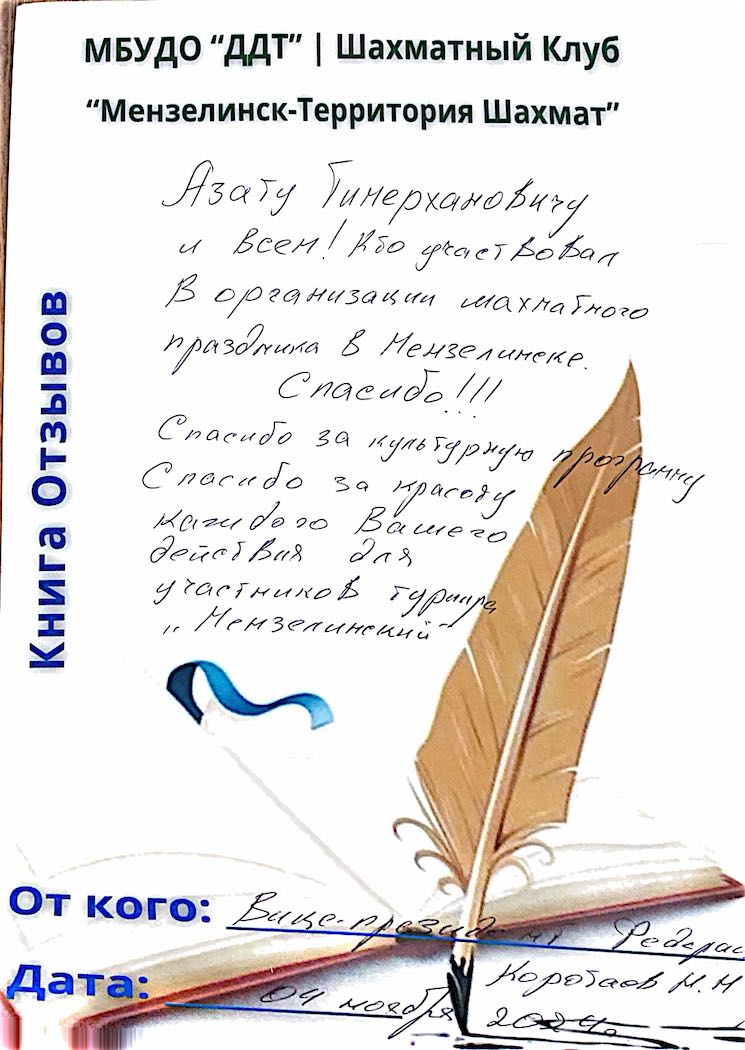 МБУДО “ДДТ” | Шахматный Клуб
“Мензелинск-Территория Шахмат”
Книга Отзывов
Азату Тимерхановичу
и всем! Кто участвовал
В организации шахматного
праздника в Мензелинске.
Спасибо!!!
Спасибо за культурную программу
Спасибо за красоту
каждого Вашего
действия для
участников турнира
„Мензелинский“
От кого: Вице-президент Федерац
Коротаев Н.Н
Дата: 04 ноября 2024г